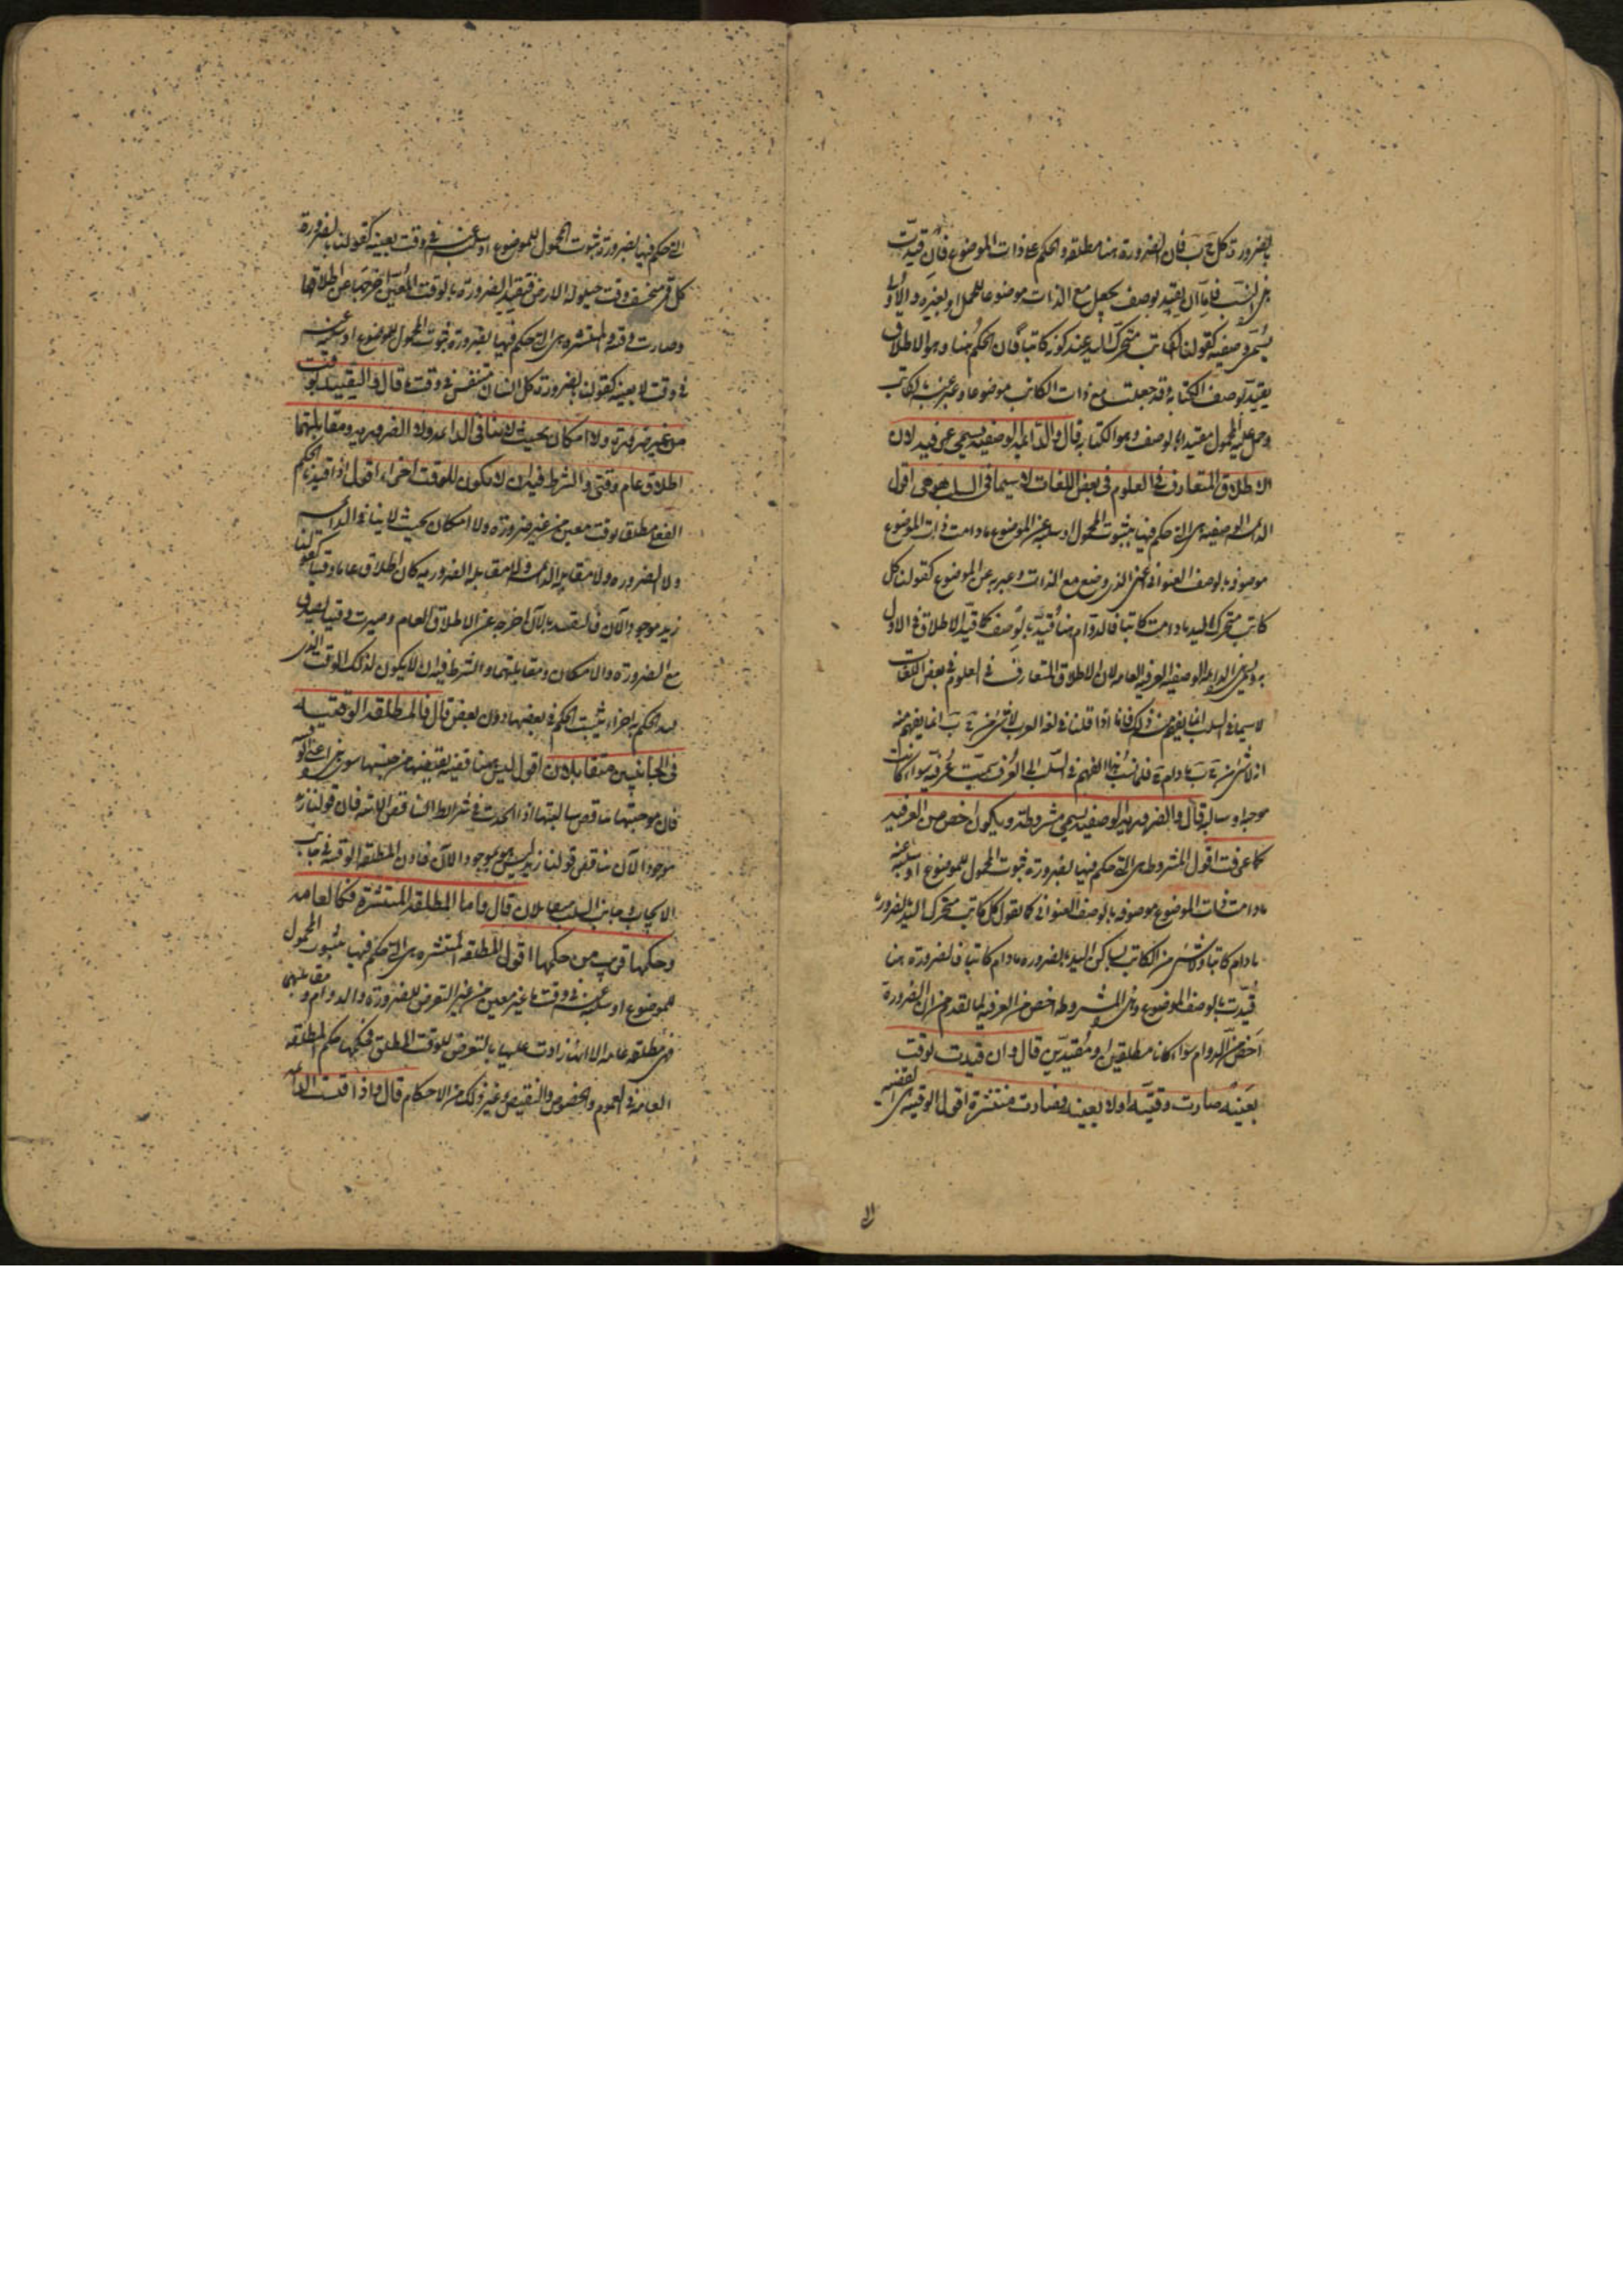 بالضرورة كل ج ب فان الضرورة هنا مطلقة والحكم على ذات الموضوع فان قيدت
هذه النسب فاما ان يقيد بوصف يجعل مع الذات موضوعا للحمل او بغيره والاول
يسمى وصفية كقولنا الكاتب متحرك اليد عند كونه كاتبا فان الحكم هنا وهو الاطلاق
يقيد بوصف الكتابة وقد جعلت مع ذات الكاتب موضوعا وعبر عنه بالكاتب
وحمل عليه المحمول مقيدا بالوصف وهو الكتابة قال والدائمة الوصفية يسمى عرفية لان
الاطلاق المتعارف في العلوم في بعض اللغات لاسيما في السلب هو هي اقول
الدائمة الوصفية هي التي حكم فيها بثبوت المحمول او سلبه عن الموضوع مادامت ذات الموضوع
موصوفة بالوصف العنواني اعني الذي وضع مع الذات وعبر به عن الموضوع كقولنا كل
كاتب متحرك اليد مادامت كاتبا فالدوام هنا قيد بالوصف كما قيد الاطلاق في الاول
به ويسمى الدائمة الوصفية العرفية العامة لان الاطلاق المتعارف في العلوم في بعض اللغات
لاسيما في السلب انما يفهم من ذلك فانا اذا قلنا في لغة العرب لا شئ من ج ب انما يفهم منه
انه لا شئ من ج ب مادام ج فلما نسب هذا الفهم في السلب الى العرف سميت عرفية سواء كانت
موجبة او سالبة قال والضرورية الوصفية يسمى مشروطة ويكون اخص من العرفية
كما عرفت اقول المشروطة هي التي حكم فيها بضرورة ثبوت المحمول للموضوع او سلبه عنه
مادامت ذات الموضوع موصوفة بالوصف العنواني كما نقول كل كاتب متحرك اليد بالضرورة
مادام كاتبا ولا شئ من الكاتب بساكن اليد بالضرورة مادام كاتبا فالضرورة هنا
قيدت بالوصف الموضوع وهي المشروطة اخص من العرفية لما تقدم من ان الضرورة
اخص من الدوام سواء كانا مطلقين او مقيدين قال وان قيدت بوقت
بعينه صارت وقتية او لا بعينه فصارت منتشرة اقول الوقتية هي القضية
التي
التي حكم فيها بضرورة ثبوت المحمول للموضوع او سلبه عنه في وقت بعينه كقولنا بالضرورة
كل قمر منخسف وقت حيلولة الارض فتقييد الضرورة بالوقت المعين اخرجها عن اطلاقها
وصارت وقتية والمنتشرة هي التي حكم فيها بضرورة ثبوت المحمول للموضوع او سلبه عنه
في وقت لا بعينه كقولنا بالضرورة كل انسان متنفس في وقت ما قال والتقييد بوقت
من غير ضرورة ولا امكان بحيث لا ينافى الدائمة ولا الضرورية ومقابلتهما
اطلاق عام وقتى والشرط فيه ان لا يكون للوقت اجزاء اقول اذا قيد الحكم
الفعلى مطلقا بوقت معين من غير ضرورة ولا امكان بحيث لا ينافى الدائمة
ولا الضرورة ولا مقابلة الدائمة ولا مقابلة الضرورية كان اطلاق عاما وقتيا كقولنا
زيد موجود الآن فالتقييد بالآن اخرجه عن الاطلاق العام وصيرته وقتيا يصدق
مع الضرورة والامكان ومقابلتهما والشرط فيه ان لا يكون لذلك الوقت الذى
قيد الحكم به اجزاء يثبت الحكم في بعضها دون بعض قال فالمطلقة الوقتية
في الجانبين متقابلان اقول ليس هنا قضية نقيضها من جنسها سوى هذه اعنى الوقتية
فان موجبتها تناقض سالبتها اذا اتحدت في شرايط التناقض الثمانية فان قولنا زيد
موجود الآن تناقض قولنا زيد ليس هو بموجود الآن فاذن المطلقة الوقتية في جانب
الايجاب وجانب السلب متقابلان قال واما المطلقة المنتشرة فكالعامة
وحكمها قريب من حكمها اقول المطلقة المنتشرة هي التي حكم فيها بثبوت المحمول
للموضوع او سلبه عنه في وقت ما غير معين من غير التعرض للضرورة والدوام ومقابلتهما
فهى مطلقة عامة الا انها زادت عليها بالتعرض للوقت المطلق فحكمها حكم المطلقة
العامة في العموم والخصوص والنقيض وغير ذلك من الاحكام قال واذا قيدت الدائمة